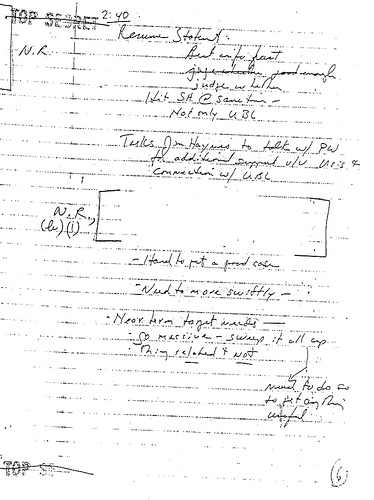 TOP SECRET
2:40
N.R.
Resume Statement:
Best info fast
judge whether good enough
judge whether
Hit SH @ same time -
Not only UBL
Tasks Jim Haynes to talk w/ PW
for additional support v/v Usis &
connection w/ UBL
N.R.,
(b)(1)
- Hard to get a good case
- Need to move swiftly -
- Near term target needs -
- go massive - sweep it all up
Things related & not
need to do so
to get anything
useful
TOP SE
6